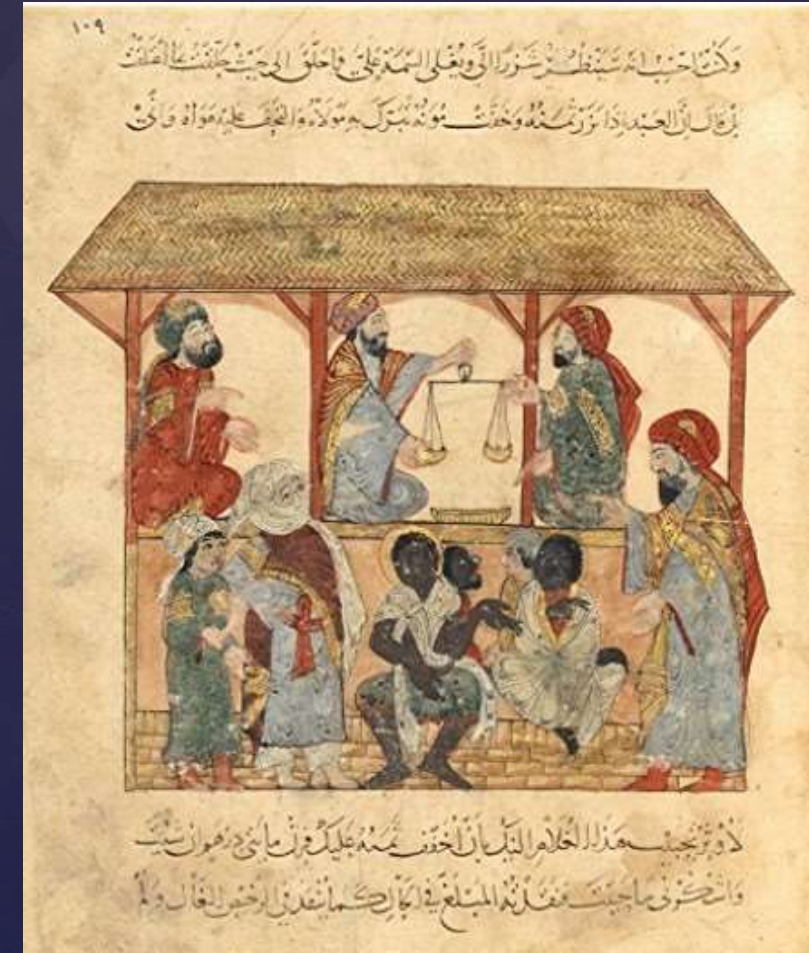 ١٠٩
وكنت احسب انه سينظر شزرا الي ويغلي السيمة علي فما حلق الى حيث حلقت
بل قال ان العبد اذا نزر ثمنه وخفت مونه تبرك به مولاه والتحف عليه هواه واني
لاوثر تحبيب هذا الغلام اليك بان اخفف ثمنه عليك فزن مأتي درهم ان شيت
واشكر لي ما حييت فنقدته المبلغ في الحال كما ينقد في الرخيص الغال ولم